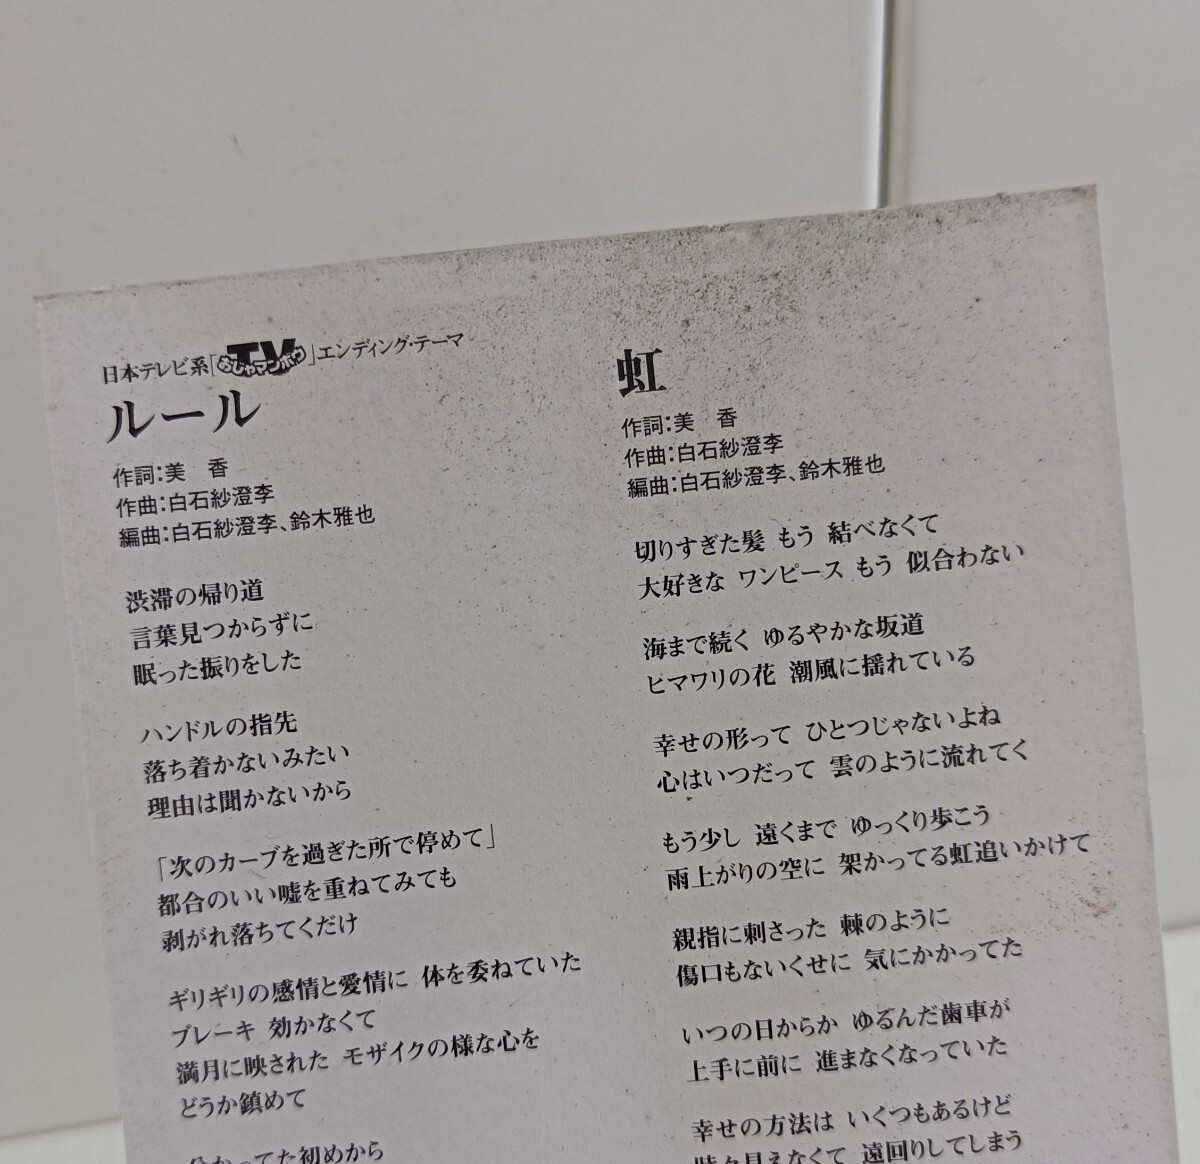 日本テレビ系「TVおじゃマンボウ」エンディング・テーマ
ルール
作詞：美　香
作曲：白石紗澄李
編曲：白石紗澄李、鈴木雅也
渋滞の帰り道
言葉見つからずに
眠った振りをした
ハンドルの指先
落ち着かないみたい
理由は聞かないから
「次のカーブを過ぎた所で停めて」
都合のいい嘘を重ねてみても
剥がれ落ちてくだけ
ギリギリの感情と愛情に 体を委ねていた
ブレーキ 効かなくて
満月に映された モザイクの様な心を
どうか鎮めて
分かってた初めから
虹
作詞：美　香
作曲：白石紗澄李
編曲：白石紗澄李、鈴木雅也
切りすぎた髪 もう 結べなくて
大好きな ワンピース もう 似合わない
海まで続く ゆるやかな坂道
ヒマワリの花 潮風に揺れている
幸せの形って ひとつじゃないよね
心はいつだって 雲のように流れてく
もう少し 遠くまで ゆっくり歩こう
雨上がりの空に 架かってる虹追いかけて
親指に刺さった 棘のように
傷口もないくせに 気にかかってた
いつの日からか ゆるんだ歯車が
上手に前に 進まなくなっていた
幸せの方法は いくつもあるけど
時々見えなくて 遠回りしてしまう